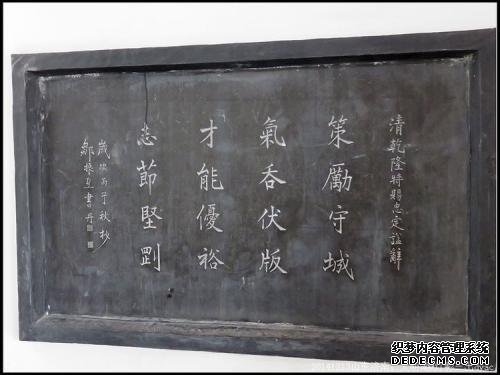 清乾隆特賜忠定謚辭
策勵守城
氣吞伏版
才能優裕
志節堅剛
歲次丙子秋杪
鄒振亞書丹
织梦内容管理系统
DEDECMS.COM